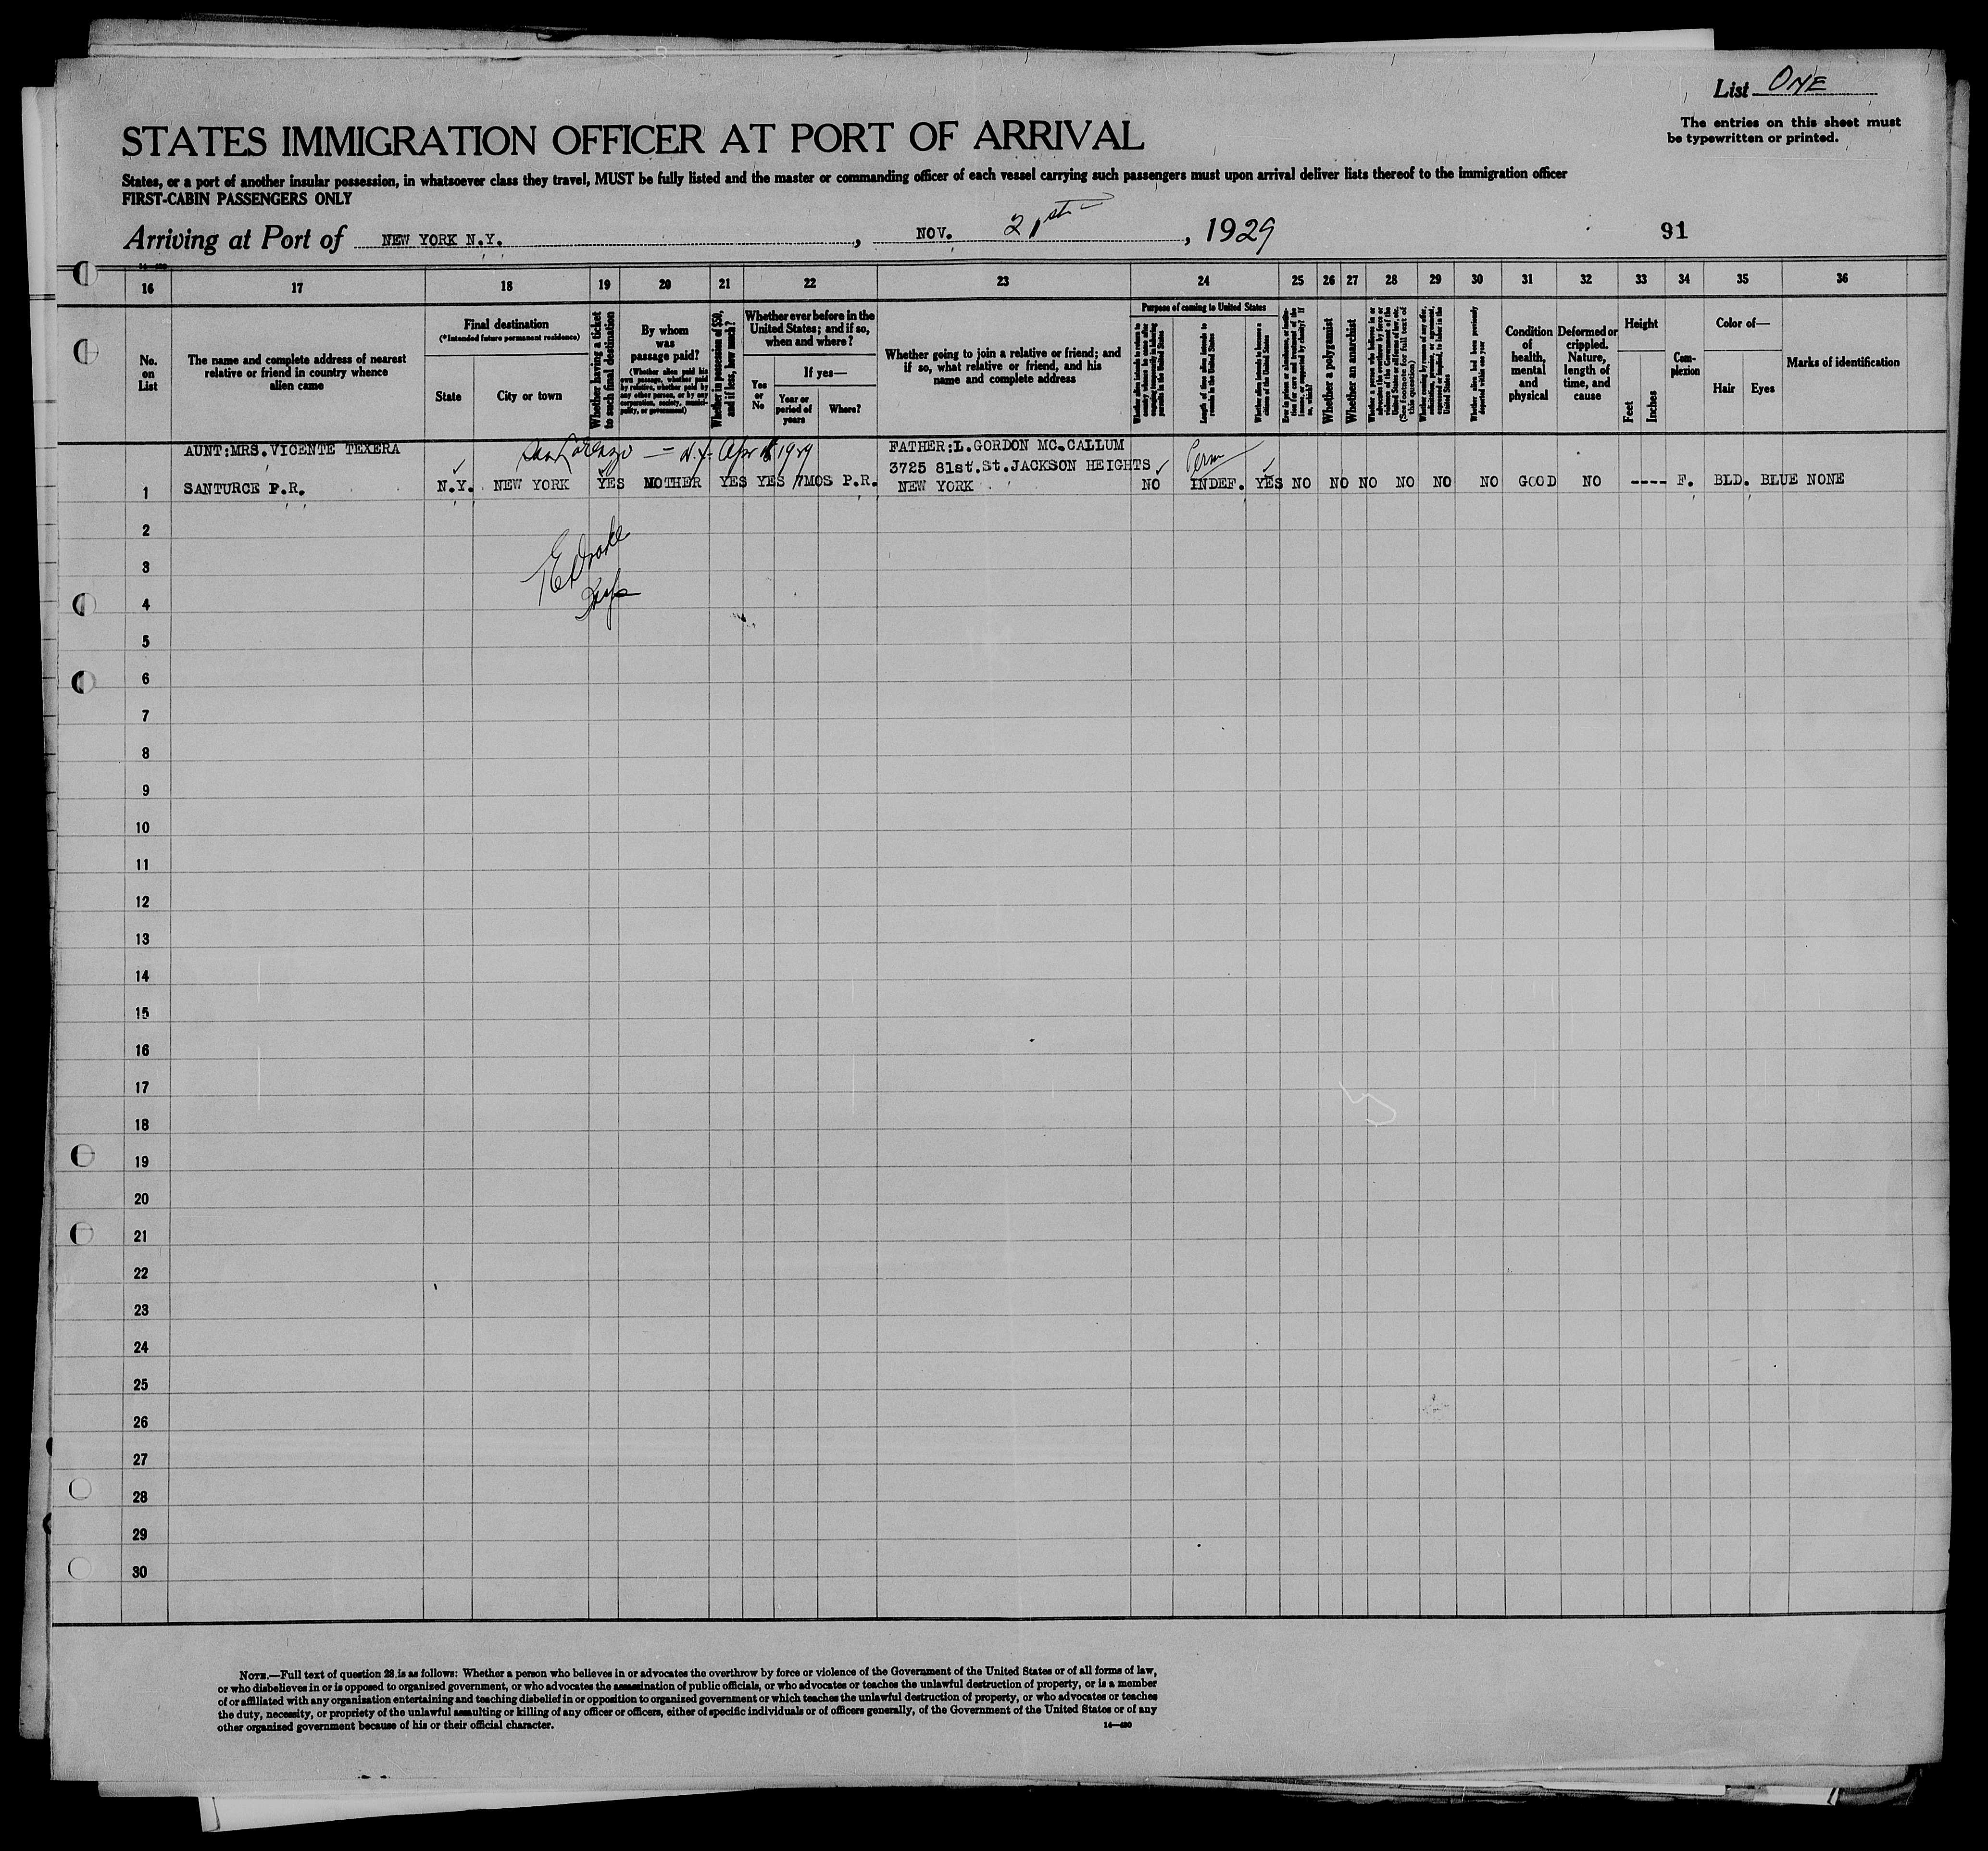 List ONE
The entries on this sheet must
be typewritten or printed.
STATES IMMIGRATION OFFICER AT PORT OF ARRIVAL
States, or a port of another insular possession, in whatsoever class they travel, MUST be fully listed and the master or commanding officer of each vessel carrying such passengers must upon arrival deliver lists thereof to the immigration officer
FIRST-CABIN PASSENGERS ONLY
Arriving at Port of NEW YORK N.Y. , NOV. 21st , 1929
91
16 17 18 19 20 21 22 23 24 25 26 27 28 29 30 31 32 33 34 35 36
No.
on
List
The name and complete address of nearest
relative or friend in country whence
alien came
Final destination
(*Intended future permanent residence)
State
City or town
Whether having a ticket
to such final destination
By whom
was
passage paid?
(Whether alien paid his
own passage, whether paid
by relative, whether paid by
any other person, or by any
corporation, society, munici-
pality, or government)
Whether in possession of $50,
and if less, how much?
Whether ever before in the
United States; and if so,
when and where?
Yes
or
No
If yes—
Year or
period of
years
Where?
Whether going to join a relative or friend; and
if so, what relative or friend, and his
name and complete address
Purpose of coming to United States
Length of time alien intends to
remain in the United States
Whether alien intends to become a
citizen of the United States
Whether a polygamist
Whether an anarchist
Whether alien had been previously
deported within one year
Condition
of
health,
mental
and
physical
Deformed or
crippled.
Nature,
length of
time, and
cause
Height
Feet
Inches
Com-
plexion
Color of—
Hair
Eyes
Marks of identification
AUNT:MRS.VICENTE TEXERA San Lorenzo — N.Y. Apr 1929 FATHER:L.GORDON MC.CALLUM
3725 81st.St.JACKSON HEIGHTS Perm
1 SANTURCE P.R. N.Y. NEW YORK YES MOTHER YES YES 7MOS P.R. NEW YORK NO INDEF. YES NO NO NO NO NO NO GOOD NO ---- F. BLD. BLUE NONE
2
3
4
5
6
7
8
9
10
11
12
13
14
15
16
17
18
19
20
21
22
23
24
25
26
27
28
29
30
NOTE.—Full text of question 28 is as follows: Whether a person who believes in or advocates the overthrow by force or violence of the Government of the United States or of all forms of law,
or who disbelieves in or is opposed to organized government, or who advocates the assassination of public officials, or who advocates or teaches the unlawful destruction of property, or is a member
of or affiliated with any organization entertaining and teaching disbelief in or opposition to organized government or which teaches the unlawful destruction of property, or who advocates or teaches
the duty, necessity, or propriety of the unlawful assaulting or killing of any officer or officers, either of specific individuals or of officers generally, of the Government of the United States or of any
other organized government because of his or their official character.
14—430